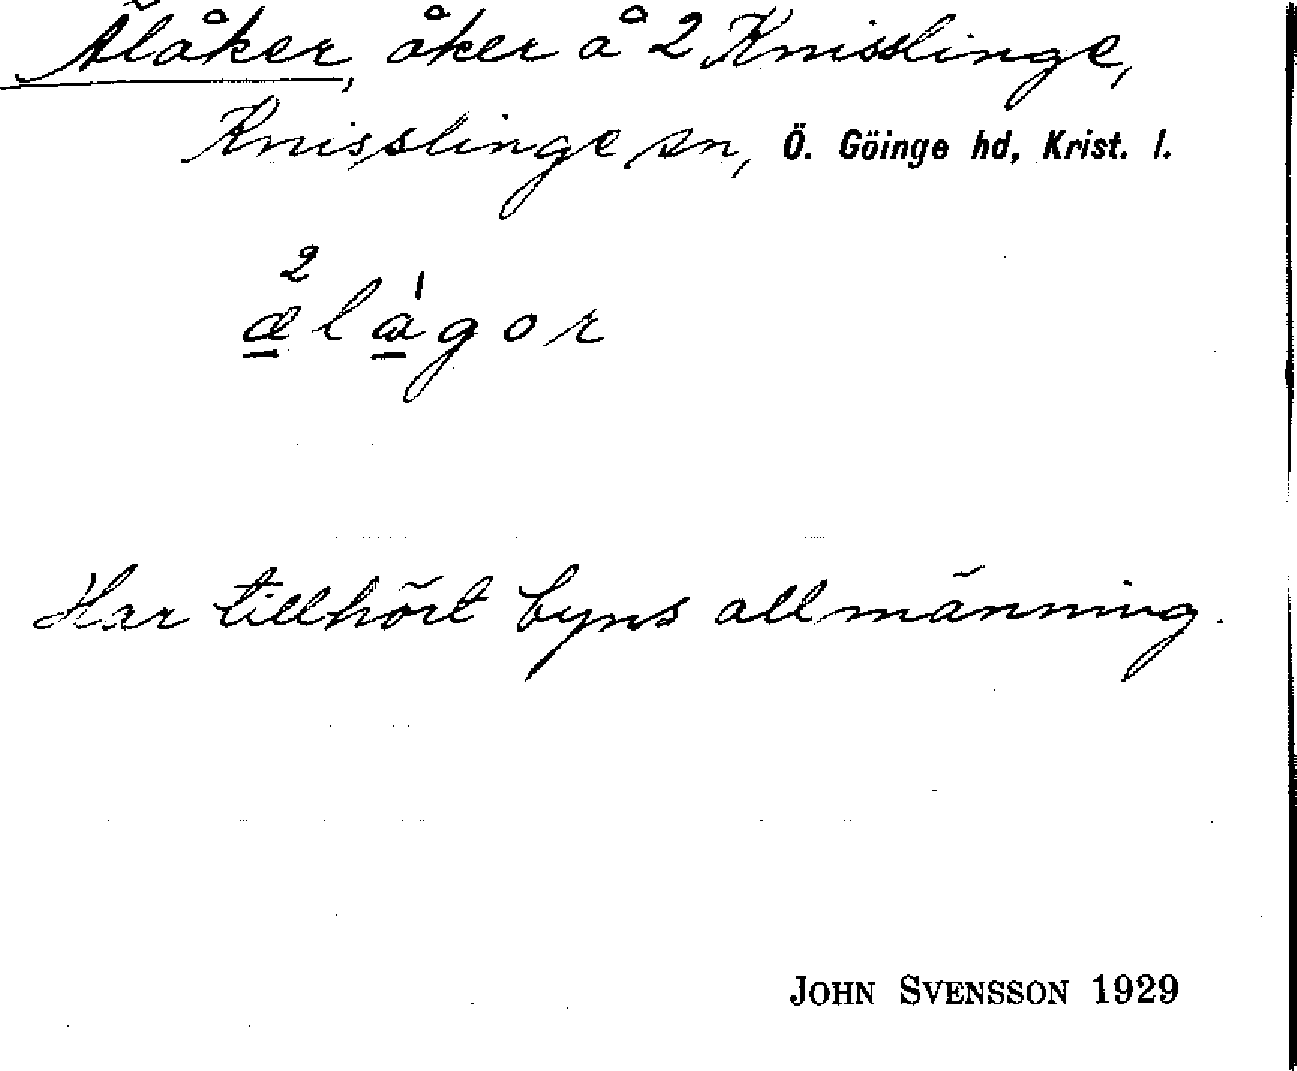 Älåker, åker å 2 Knisslinge,
Knisslinge sn, Ö. Göinge hd, Krist. l.
Har tillhört byns allmänning.
JOHN SVENSSON 1929